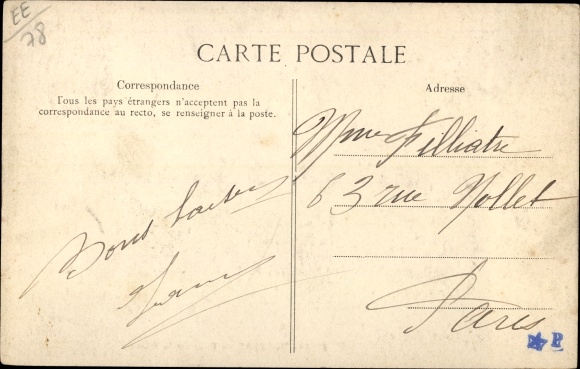 EE
78
CARTE POSTALE
Correspondance
Tous les pays étrangers n'acceptent pas la
correspondance au recto, se renseigner à la poste.
Adresse
Mme Filliatre
63 rue Nollet
Paris
Bons baisers
P